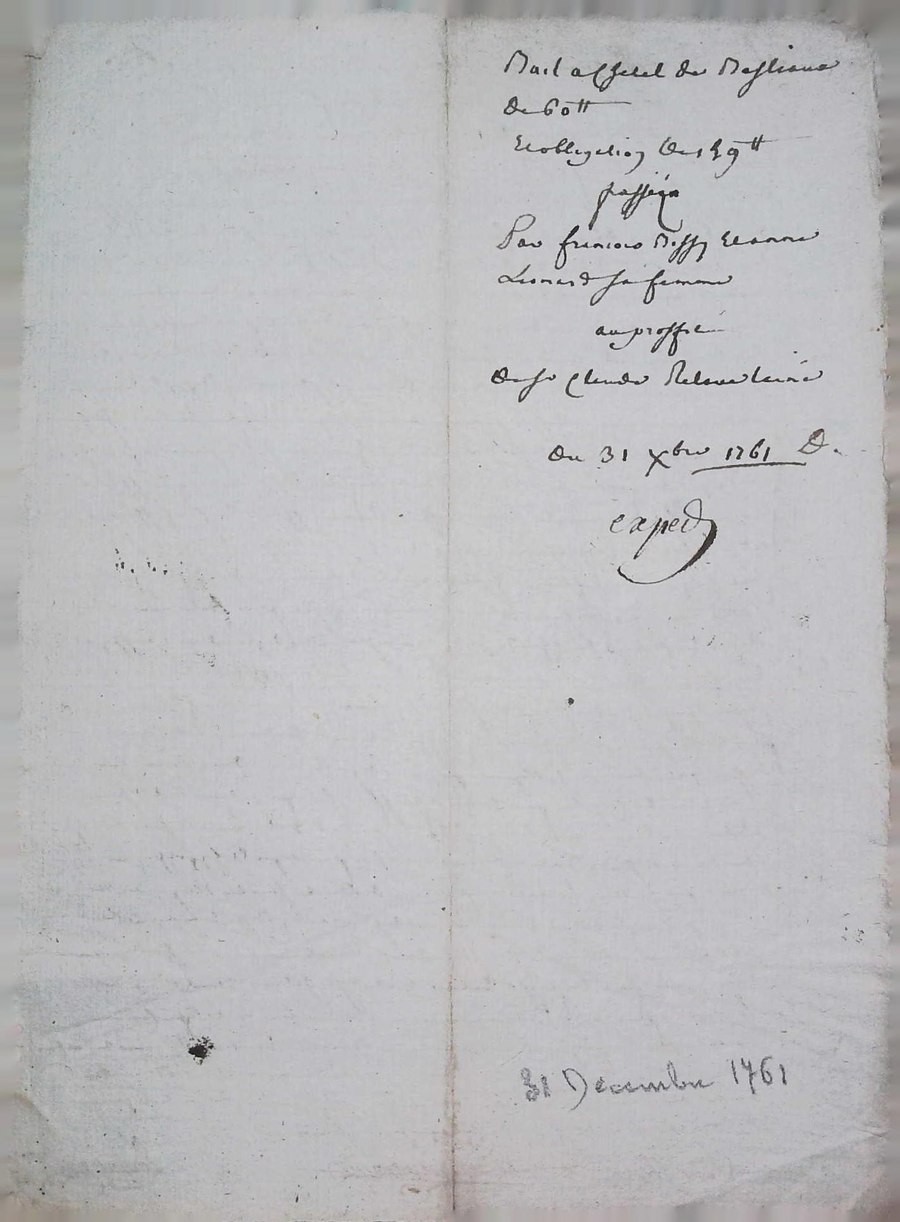 Bail a Chetel de Bestiaux
de 60tt
Et obligation de 139tt
passée
Par francois Bossy Et anne
Leonard sa femme
au proffit
de Sr Claude
du 31 Xbre 1761 D.
exped
31 Decembre 1761